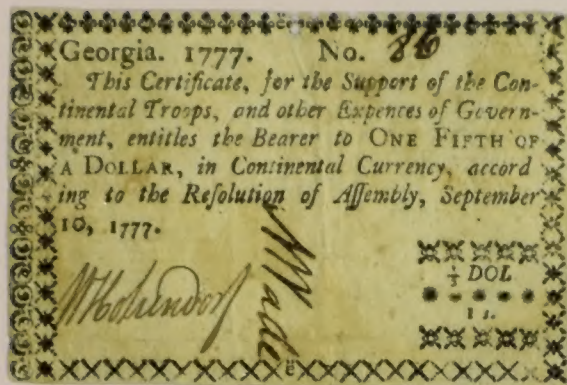 Georgia. 1777. No. 86
This Certificate, for the Support of the Con-
tinental Troops, and other Expences of Govern-
ment, entitles the Bearer to ONE FIFTH OF
A DOLLAR, in Continental Currency, accord
ing to the Reſolution of Aſſembly, September
10, 1777.
Wade
⅕ DOL
1 s.